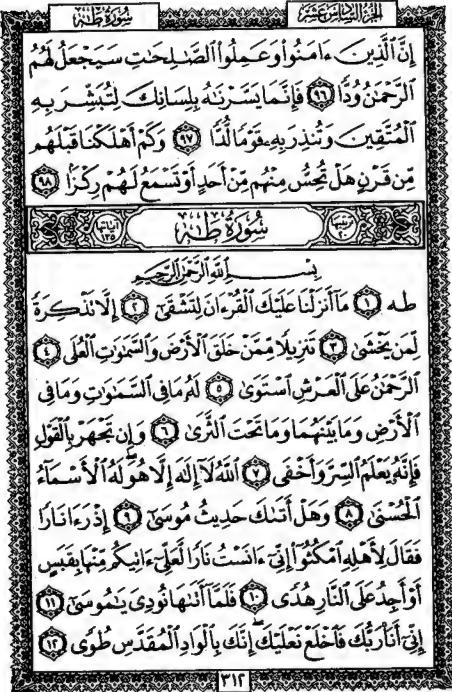 سُورَةُ طٰهٰ
الجزء السادس عشر
إِنَّ ٱلَّذِينَ ءَامَنُوا۟ وَعَمِلُوا۟ ٱلصَّٰلِحَٰتِ سَيَجْعَلُ لَهُمُ
ٱلرَّحْمَٰنُ وُدًّا ٩٦ فَإِنَّمَا يَسَّرْنَٰهُ بِلِسَانِكَ لِتُبَشِّرَ بِهِ
ٱلْمُتَّقِينَ وَتُنذِرَ بِهِۦ قَوْمًا لُّدًّا ٩٧ وَكَمْ أَهْلَكْنَا قَبْلَهُم
مِّن قَرْنٍ هَلْ تُحِسُّ مِنْهُم مِّنْ أَحَدٍ أَوْ تَسْمَعُ لَهُمْ رِكْزًۢا ٩٨
سُورَةُ طٰهٰ
بِسْمِ ٱللَّهِ ٱلرَّحْمَٰنِ ٱلرَّحِيمِ
طه ١ مَآ أَنزَلْنَا عَلَيْكَ ٱلْقُرْءَانَ لِتَشْقَىٰٓ ٢ إِلَّا تَذْكِرَةً
لِّمَن يَخْشَىٰ ٣ تَنزِيلًا مِّمَّنْ خَلَقَ ٱلْأَرْضَ وَٱلسَّمَٰوَٰتِ ٱلْعُلَى ٤
ٱلرَّحْمَٰنُ عَلَى ٱلْعَرْشِ ٱسْتَوَىٰ ٥ لَهُۥ مَا فِى ٱلسَّمَٰوَٰتِ وَمَا فِى
ٱلْأَرْضِ وَمَا بَيْنَهُمَا وَمَا تَحْتَ ٱلثَّرَىٰ ٦ وَإِن تَجْهَرْ بِٱلْقَوْلِ
فَإِنَّهُۥ يَعْلَمُ ٱلسِّرَّ وَأَخْفَى ٧ ٱللَّهُ لَآ إِلَٰهَ إِلَّا هُوَ ۖ لَهُ ٱلْأَسْمَآءُ
ٱلْحُسْنَىٰ ٨ وَهَلْ أَتَىٰكَ حَدِيثُ مُوسَىٰٓ ٩ إِذْ رَءَا نَارًا
فَقَالَ لِأَهْلِهِ ٱمْكُثُوٓا۟ إِنِّىٓ ءَانَسْتُ نَارًا لَّعَلِّىٓ ءَاتِيكُم مِّنْهَا بِقَبَسٍ
أَوْ أَجِدُ عَلَى ٱلنَّارِ هُدًى ١٠ فَلَمَّآ أَتَىٰهَا نُودِىَ يَٰمُوسَىٰٓ ١١
إِنِّىٓ أَنَا۠ رَبُّكَ فَٱخْلَعْ نَعْلَيْكَ ۖ إِنَّكَ بِٱلْوَادِ ٱلْمُقَدَّسِ طُوًى ١٢
٣١٢